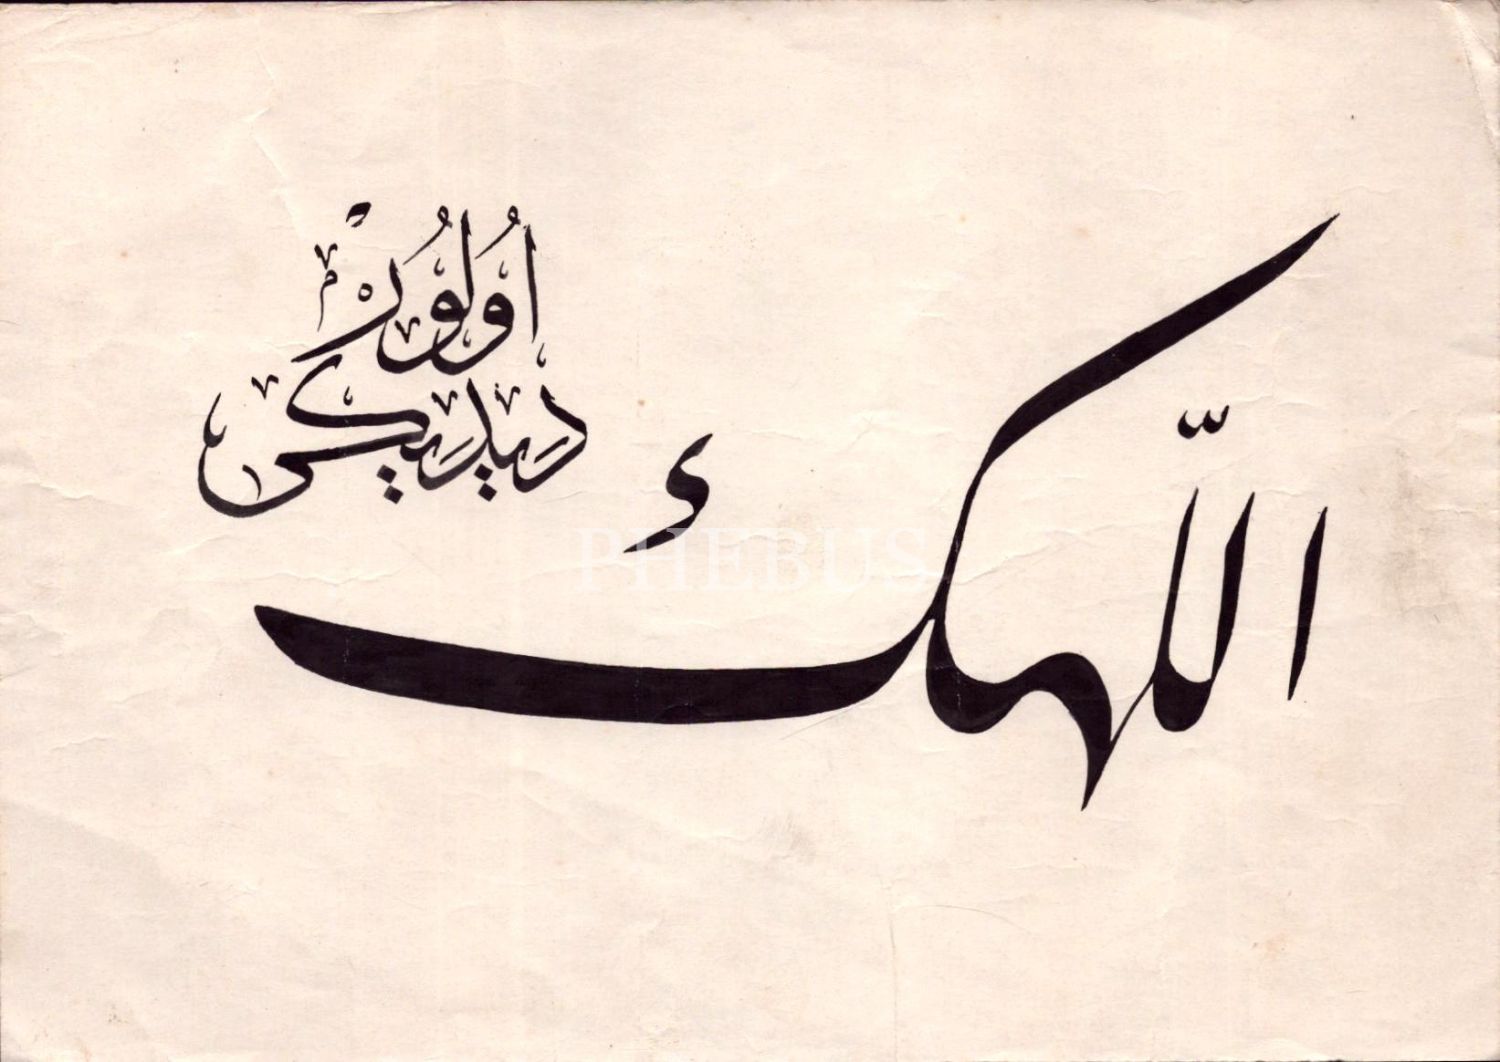 اللّهڭ
دَيدِيكى
اُولُورْ
PHEBUS